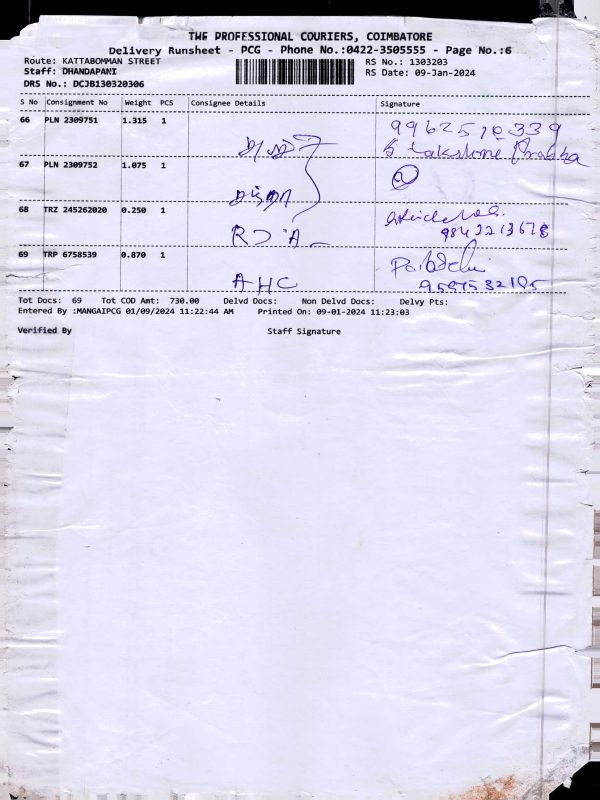 THE PROFESSIONAL COURIERS, COIMBATORE
Delivery Runsheet - PCG - Phone No.:0422-3505555 - Page No.:6
Route: KATTABOMMAN STREET RS No.: 1303203
Staff: DHANDAPANI RS Date: 09-Jan-2024
DRS No.: DCJB130320306
S No Consignment No Weight PCS Consignee Details Signature
66 PLN 2309751 1.315 1
67 PLN 2309752 1.075 1
68 TRZ 245262020 0.250 1
69 TRP 6758539 0.870 1
AHC
Tot Docs: 69 Tot COD Amt: 730.00 Delvd Docs: Non Delvd Docs: Delvy Pts:
Entered By :MANGAIPCG 01/09/2024 11:22:44 AM Printed On: 09-01-2024 11:23:03
Verified By Staff Signature